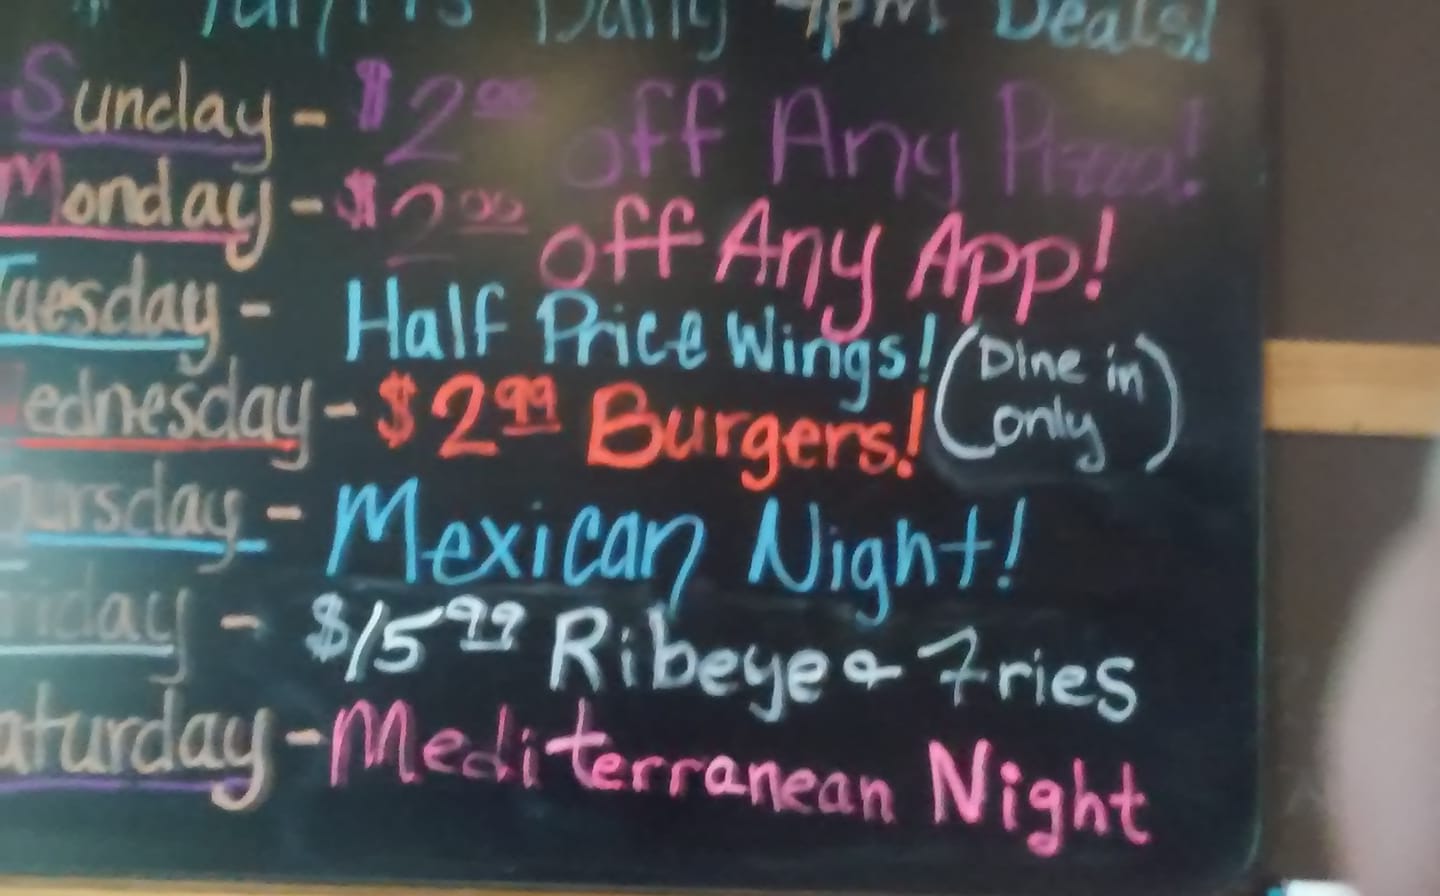 Daily 4pm Deals!
Sunday - $2.00 off Any Pizza!
Monday - $2.00 off Any App!
Tuesday - Half Price Wings! (Dine in only)
ednesday - $2.99 Burgers!
ursday - Mexican Night!
riday - $15.99 Ribeye & Fries
aturday - Mediterranean Night